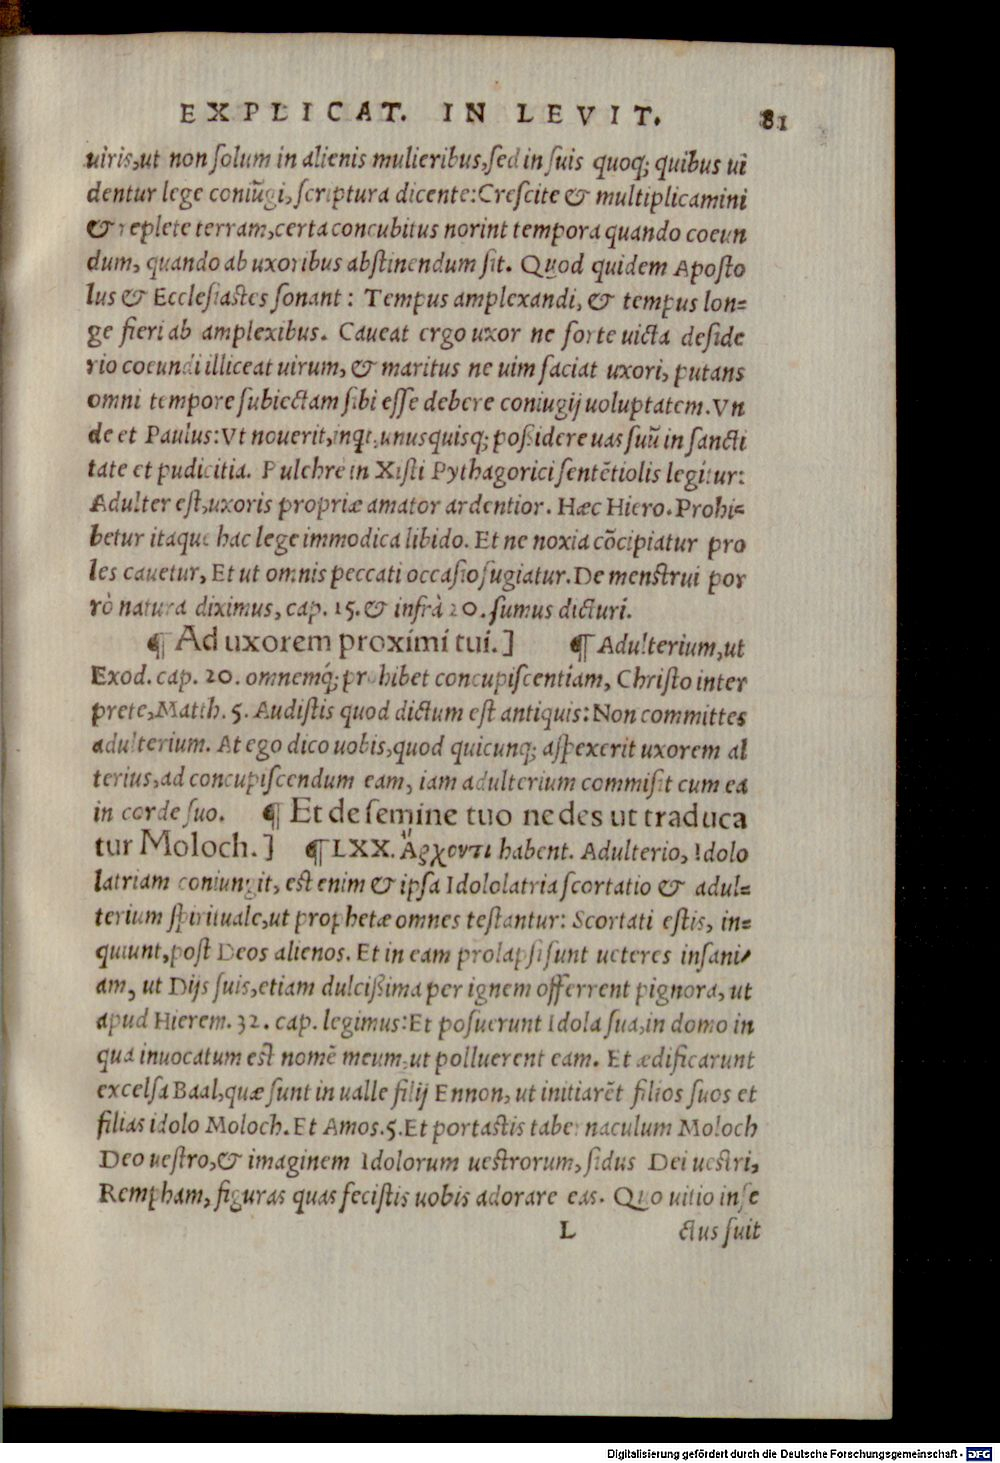 EXPLICAT. IN LEVIT. 81
uiris,ut non ſolum in alienis mulieribus,ſed in ſuis quoq; quibus ui
dentur lege coniūgi, ſcriptura dicente:Creſcite & multiplicamini
& replete terram,certa concubitus norint tempora quando coeun
dum, quando ab uxoribus abſtinendum ſit. Quod quidem Apoſto
lus & Eccleſiaſtes ſonant : Tempus amplexandi, & tempus lon=
ge fieri ab amplexibus. Caueat ergo uxor ne forte uicta deſide
rio coeundi illiceat uirum, & maritus ne uim faciat uxori, putans
omni tempore ſubiectam ſibi eſſe debere coniugij uoluptatem. Vn
de et Paulus:Vt nouerit,inqt,unusquisq; poßidere uas ſuū in ſancti
tate et pudicitia. Pulchre in Xiſti Pythagorici ſentētiolis legitur:
Adulter eſt,uxoris propriæ amator ardentior. Hæc Hiero. Prohi=
betur itaque hac lege immodica libido. Et ne noxia cōcipiatur pro
les cauetur, Et ut omnis peccati occaſio fugiatur. De menſtrui por
rò natura diximus, cap. 15. & infrà 20. ſumus dicturi.
¶ Ad uxorem proximi tui.] ¶ Adulterium,ut
Exod. cap. 20. omnemq́; prohibet concupiſcentiam, Chriſto inter
prete,Matth. 5. Audiſtis quod dictum eſt antiquis: Non committes
adulterium. At ego dico uobis,quod quicunq; aſpexerit uxorem al
terius,ad concupiſcendum eam, iam adulterium commiſit cum ea
in corde ſuo. ¶ Et de ſemine tuo ne des ut traduca
tur Moloch.] ¶ LXX. Ἄρχοντι habent. Adulterio, Idolo
latriam coniungit, eſt enim & ipſa Idololatria ſcortatio & adul=
terium ſpirituale,ut prophetæ omnes teſtantur: Scortati eſtis, in=
quiunt,poſt Deos alienos. Et in eam prolapſi ſunt ueteres inſani=
am, ut Dijs ſuis,etiam dulcißima per ignem offerrent pignora, ut
apud Hierem. 32. cap. legimus:Et poſuerunt Idola ſua,in domo in
qua inuocatum eſt nomē meum,ut polluerent eam. Et ædificarunt
excelſa Baal,quæ ſunt in ualle filij Ennon, ut initiarēt filios ſuos et
filias idolo Moloch. Et Amos.5.Et portaſtis tabernaculum Moloch
Deo ueſtro,& imaginem Idolorum ueſtrorum, ſidus Dei ueſtri,
Rempham, figuras quas feciſtis uobis adorare eas. Quo uitio infe
L ctus fuit
Digitalisierung gefördert durch die Deutsche Forschungsgemeinschaft - DFG